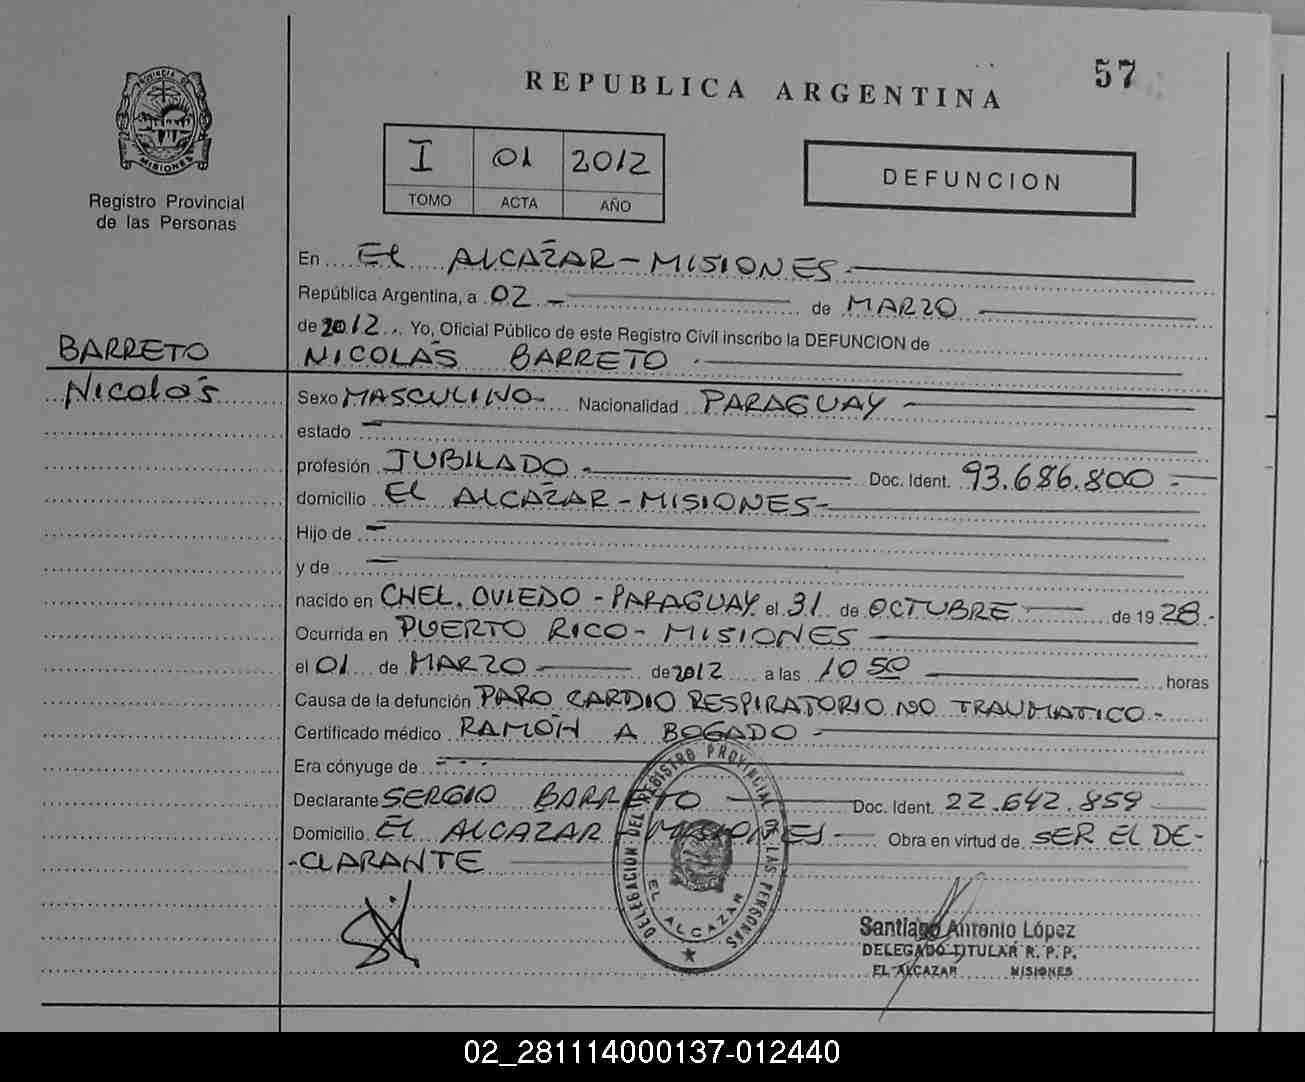 57
REPUBLICA ARGENTINA
PROVINCIA DE
MISIONES
Registro Provincial
de las Personas
I 01 2012
TOMO ACTA AÑO
DEFUNCION
En EL ALCAZAR - MISIONES -
República Argentina, a 02 - de MARZO
de 2012. Yo, Oficial Público de este Registro Civil inscribo la DEFUNCION de
BARRETO
NICOLÁS BARRETO
Nicolás
Sexo MASCULINO - Nacionalidad PARAGUAY -
estado -
profesión JUBILADO - Doc. Ident. 93.686.800 -
domicilio EL ALCAZAR - MISIONES -
Hijo de -
y de -
nacido en CNEL. OVIEDO - PARAGUAY el 31 de OCTUBRE de 1928 -
Ocurrida en PUERTO RICO - MISIONES
el 01 de MARZO de 2012 a las 10 50 horas
Causa de la defunción PARO CARDIO RESPIRATORIO NO TRAUMATICO -
Certificado médico RAMÓN A BOGADO -
Era cónyuge de - - -
Declarante SERGIO BARRETO Doc. Ident. 22.642.859
Domicilio EL ALCAZAR MISIONES - Obra en virtud de SER EL DE-
-CLARANTE
DELEGACION DEL REGISTRO PROVINCIAL DE LAS PERSONAS
EL ALCAZAR
Santiago Antonio López
DELEGADO TITULAR R. P. P.
EL ALCAZAR MISIONES
02_281114000137-012440